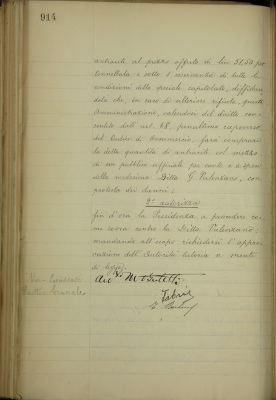 914
antracite al prezzo offerto di Lire 38,50 per
tonnellata e sotto l'osservanza di tutte le
condizioni dello speciale capitolato, diffidan-
dola che, in caso di ulteriore rifiuto, questa
Amministrazione, valendosi del diritto con-
cessole dall'art. 68, penultimo capoverso,
del Codice di Commercio, farà comperare
la detta quantità di antracite col mezzo
di un pubblico ufficiale per conto e a spese
della medesima Ditta G. Valentano, con
protesta dei danni;
2° autorizza
fin d'ora la Presidenza a provvedere co-
me sovra contro la Ditta
mandando all'uopo richiedersi l'appro-
vazione dell'Autorità tutoria a mente
di legge.
Via